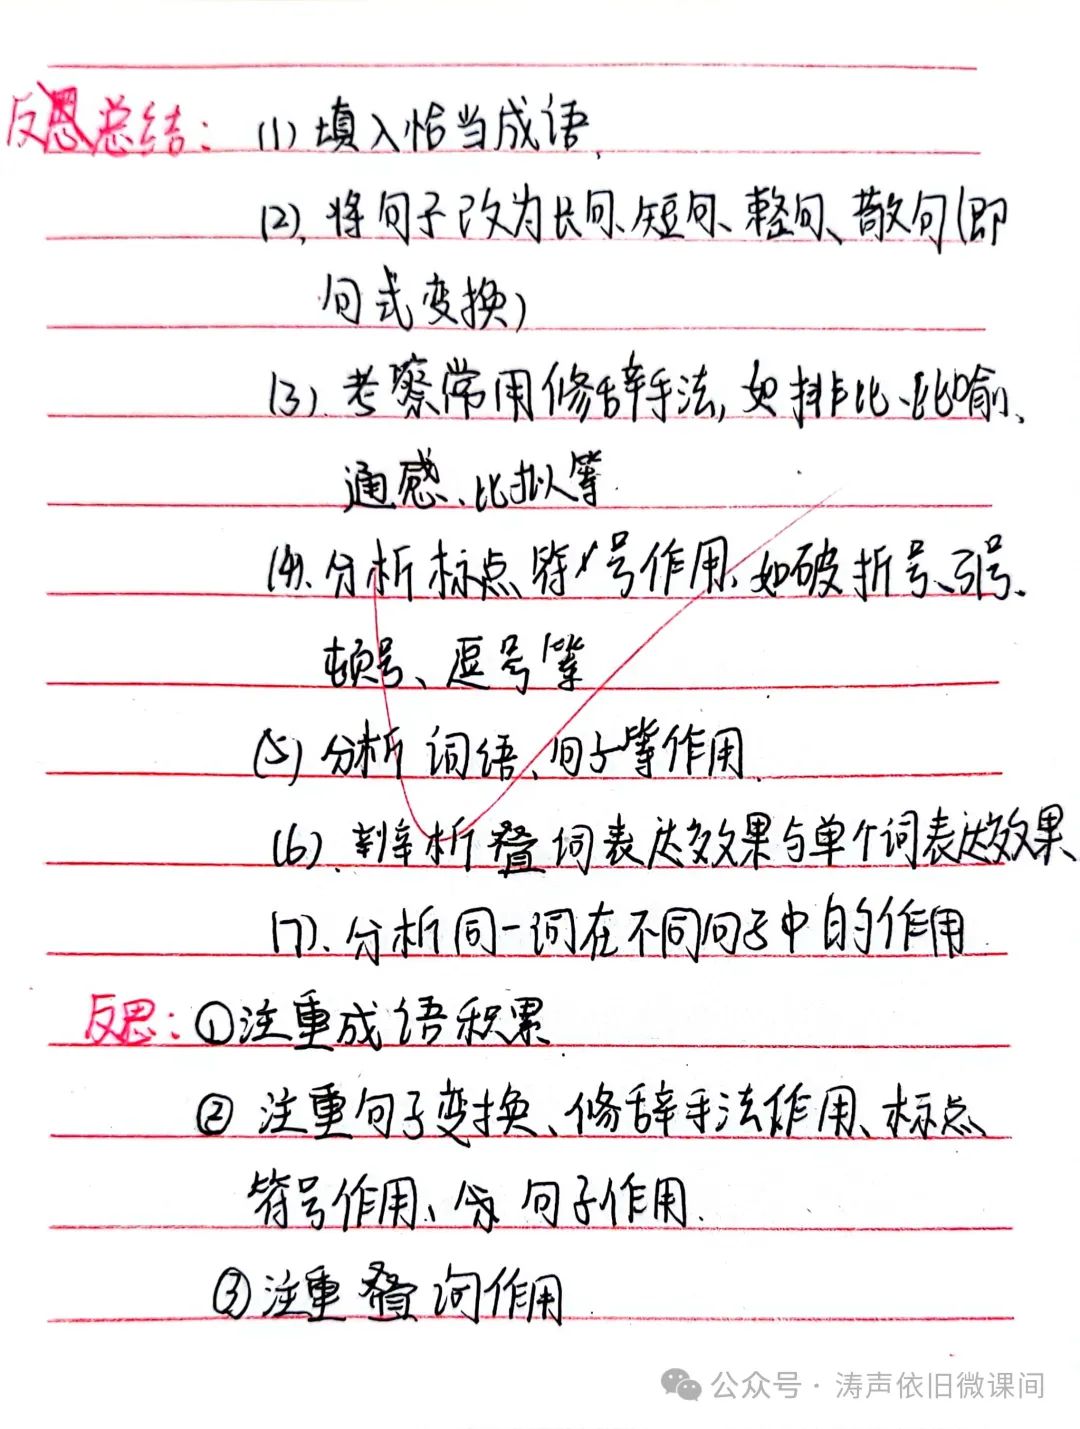 反思总结：(1)填入恰当成语.
(2).将句子改为长句、短句、整句、散句(即
句式变换)
(3).考察常用修辞手法,如排比、比喻、
通感、比拟等.
(4).分析标点符号作用、如破折号、引号、
顿号、逗号等
(5)分析词语、句子等作用.
(6).辨析叠词表达效果与单个词表达效果
(7).分析同一词在不同句子中的作用
反思：①注重成语积累
②注重句子变换、修辞手法作用、标点
符号作用、句子作用.
③注重叠词作用
公众号·涛声依旧微课间